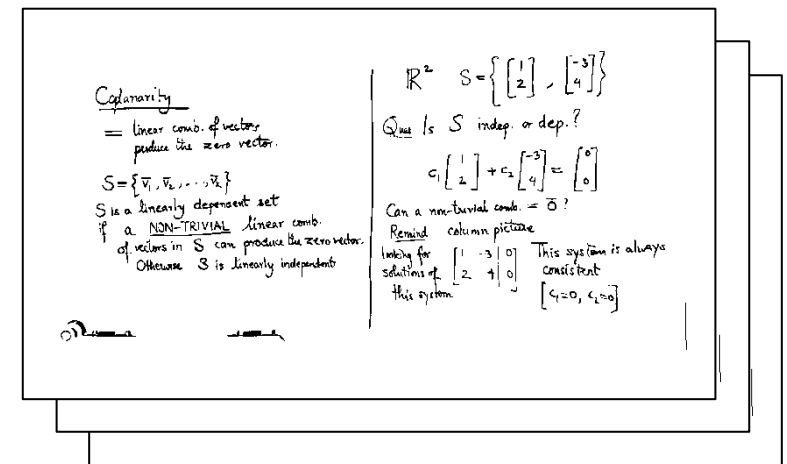 Coplanarity
= linear comb. of vectors
produce the zero vector.
S = { v̄₁, v̄₂, . . . , v̄ₖ }
S is a linearly dependent set
if a NON-TRIVIAL linear comb.
of vectors in S can produce the zero vector.
Otherwise S is linearly independent
ℝ² S = { [1 2], [-3 4] }
Ques Is S indep. or dep.?
c₁ [1 2] + c₂ [-3 4] = [0 0]
Can a non-trivial comb. = 0̄ ?
Remind column picture
looking for
solutions of
this system
[1 -3 | 0
2 4 | 0]
This system is always
consistent
[c₁=0, c₂=0]